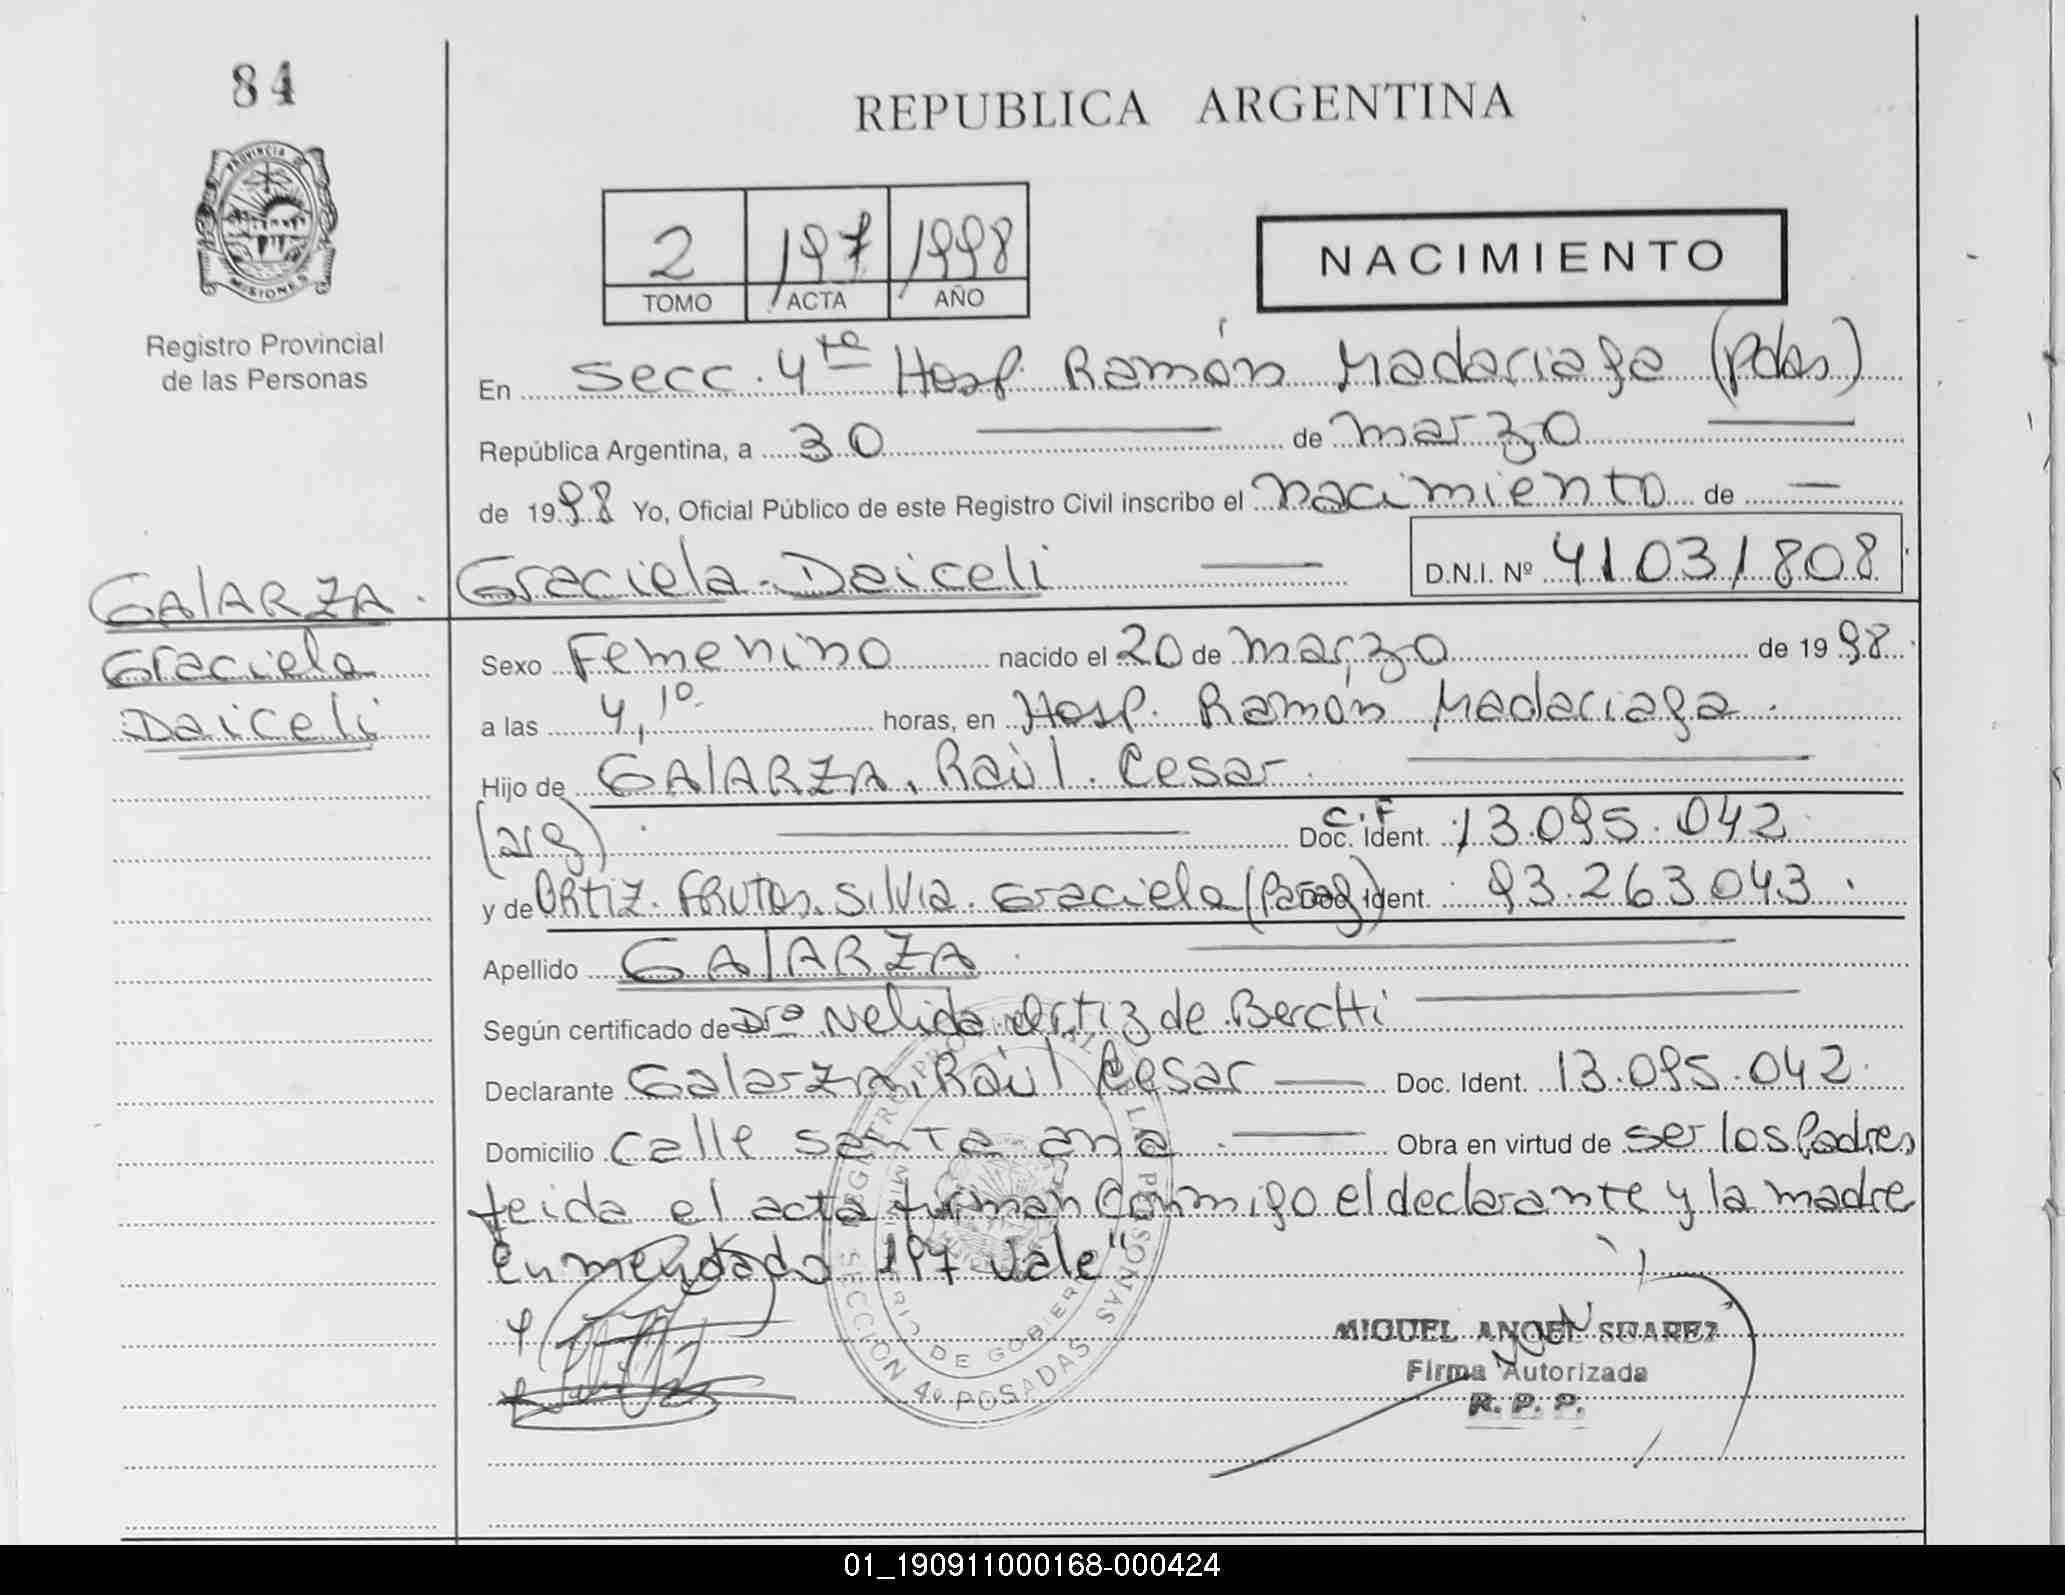 84
REPUBLICA ARGENTINA
PROVINCIA DE
MISIONES
Registro Provincial
de las Personas
2 197 1998
TOMO ACTA AÑO
NACIMIENTO
En Secc. 4ta Hosp. Ramón Madariaga (Pdas)
República Argentina, a 30 de marzo
de 1998 Yo, Oficial Público de este Registro Civil inscribo el nacimiento de
Graciela Daiceli D.N.I. Nº 41031808
GAlARZA
Graciela
Daiceli
Sexo Femenino nacido el 20 de marzo de 1998.
a las 4,10 horas, en Hosp. Ramón Madariaga.
Hijo de GAlARZA, Raúl Cesar
(arg) C.F Doc. Ident. 13.095.042
y de ORTIZ FRUTOS, Silvia Graciela (Parag) Doc. Ident. 93.263.043.
Apellido GAlARZA
Según certificado de Dra Nelida Ortiz de Berctti
Declarante GalarZA, Raúl Cesar Doc. Ident. 13.095.042
Domicilio Calle santa ana Obra en virtud de ser los Padres
leida el acta firman Conmigo el declarante y la madre
Enmendado 197 Vale"
REGISTRO PROVINCIAL DE LAS PERSONAS
SECCION 4º POSADAS
DE GOBIERNO
MIGUEL ANGEL SUAREZ
Firma Autorizada
R. P. P.
01_190911000168-000424